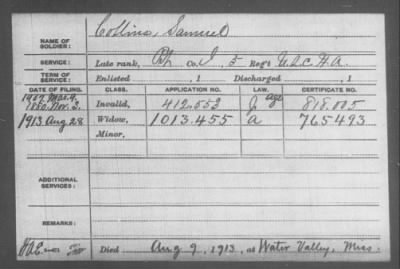 NAME OF SOLDIER: Collins, Samuel
SERVICE: Late rank, Co. I, 5 Reg't U.S.C.H.A.
TERM OF SERVICE: Enlisted , 1 Discharged , 1
DATE OF FILING. CLASS. APPLICATION NO. LAW. CERTIFICATE NO.
1907 Mar. 4
1880 Nov. 3. Invalid, 412.553 J age 818.005
1913 Aug 28 Widow, 1013.455 a 765493
Minor,
ADDITIONAL SERVICES:
REMARKS:
Died Aug 9, 1913, at Water Valley, Miss.